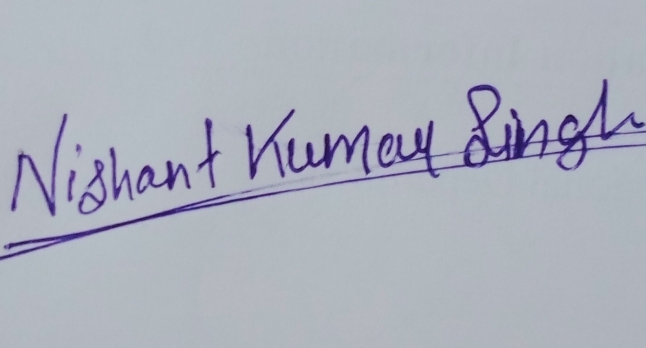 Nishant Kumar Singh